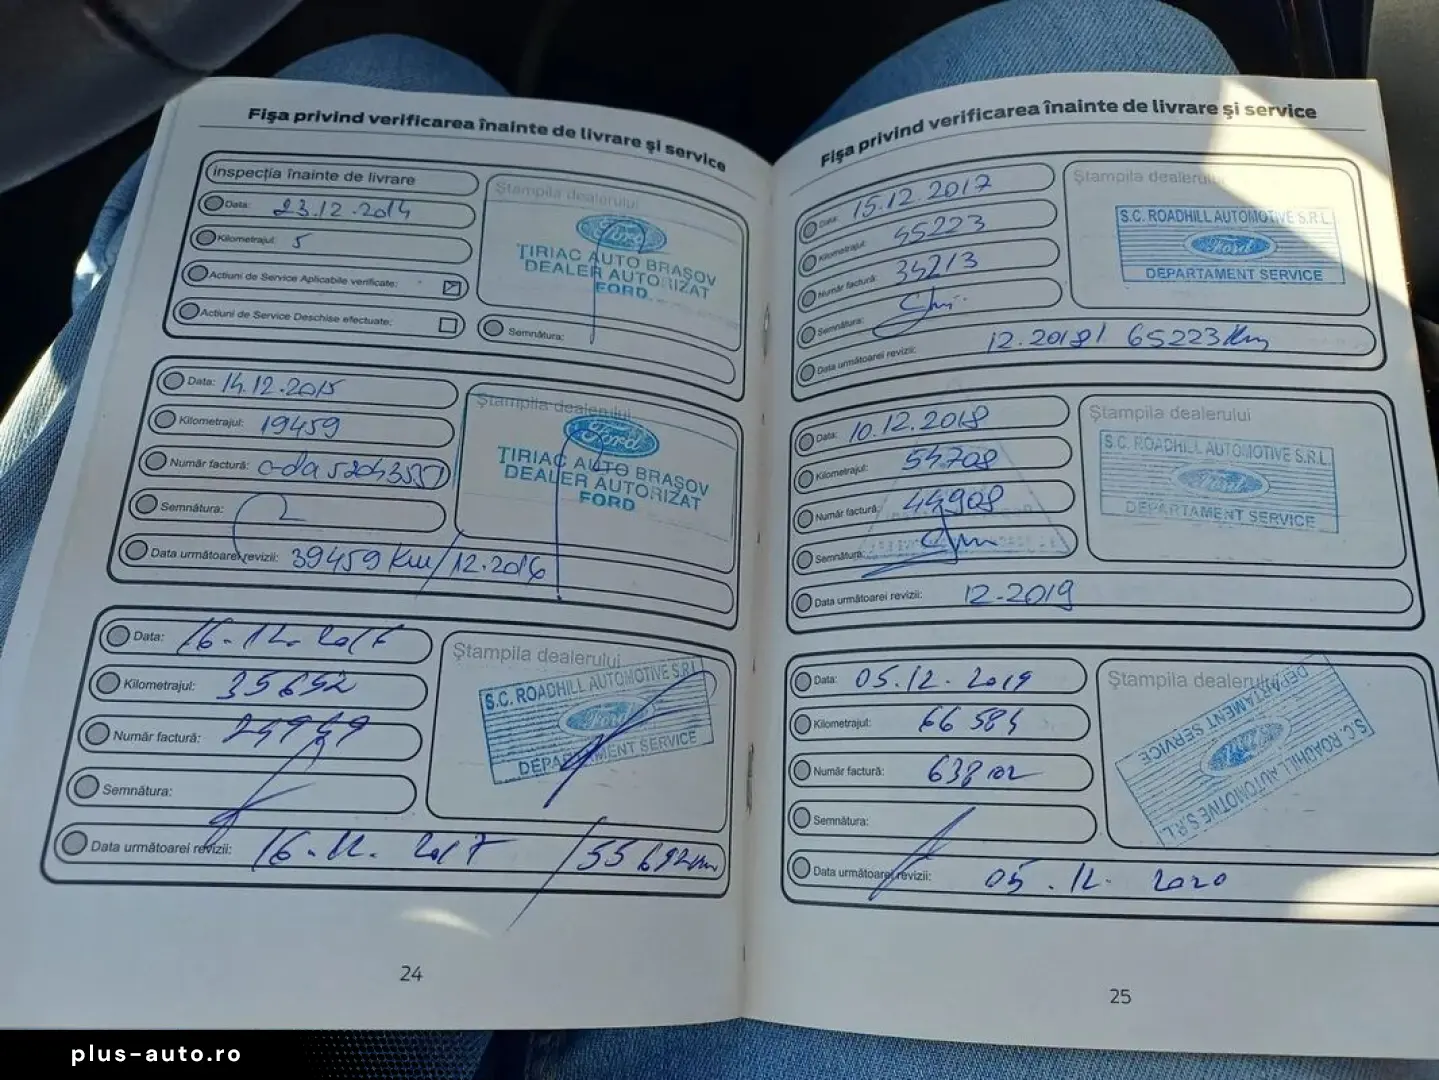 Fişa privind verificarea înainte de livrare şi service
inspecţia înainte de livrare
Data: 23.12.2014
Kilometrajul: 5
Acţiuni de Service Aplicabile verificate:
Acţiuni de Service Deschise efectuate:
Ştampila dealerului
Ford
ŢIRIAC AUTO BRAŞOV
DEALER AUTORIZAT
FORD
Semnătura:
Data: 14.12.2015
Kilometrajul: 19459
Număr factură:
Semnătura:
Data următoarei revizii: 39459 Km/12.2016
Ştampila dealerului
Ford
ŢIRIAC AUTO BRAŞOV
DEALER AUTORIZAT
FORD
Data: 16.12.2016
Kilometrajul: 35692
Număr factură:
Semnătura:
Data următoarei revizii: 16.12.2017 / 55692km
Ştampila dealerului
S.C. ROADHILL AUTOMOTIVE S.R.L.
Ford
DEPARTAMENT SERVICE
24
Fişa privind verificarea înainte de livrare şi service
Data: 15.12.2017
Kilometrajul: 45223
Număr factură: 34213
Semnătura:
Data următoarei revizii: 12.2018/ 65223Km
Ştampila dealerului
S.C. ROADHILL AUTOMOTIVE S.R.L.
Ford
DEPARTAMENT SERVICE
Data: 10.12.2018
Kilometrajul: 54708
Număr factură: 44908
Semnătura:
Data următoarei revizii: 12-2019
Ştampila dealerului
S.C. ROADHILL AUTOMOTIVE S.R.L.
Ford
DEPARTAMENT SERVICE
Data: 05.12.2019
Kilometrajul: 66584
Număr factură: 638102
Semnătura:
Data următoarei revizii: 05.12.2020
Ştampila dealerului
S.C. ROADHILL AUTOMOTIVE S.R.L.
Ford
DEPARTAMENT SERVICE
25
plus-auto.ro